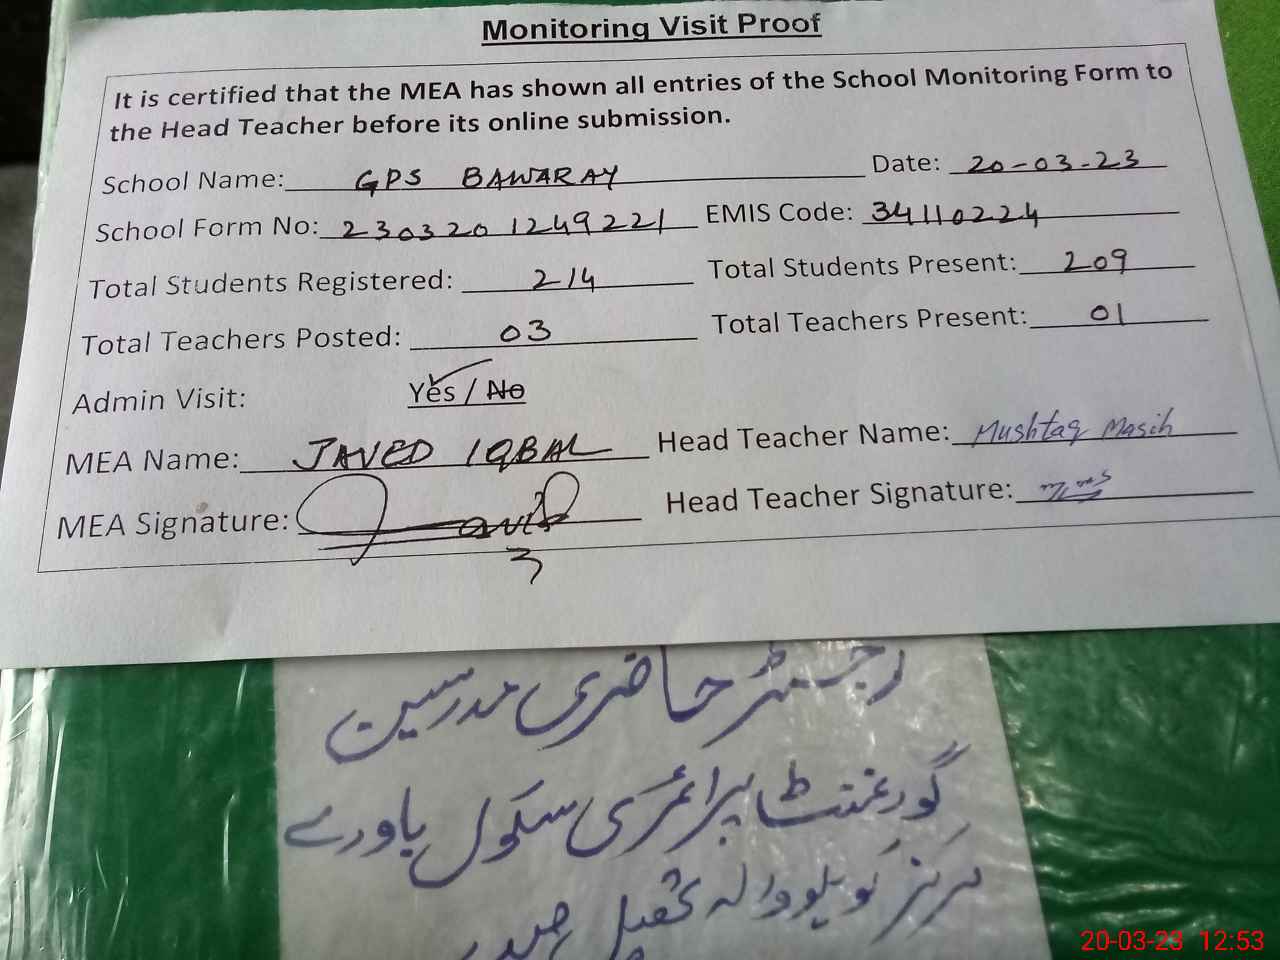 Monitoring Visit Proof
It is certified that the MEA has shown all entries of the School Monitoring Form to
the Head Teacher before its online submission.
School Name: GPS BAWARAY Date: 20-03-23
School Form No: 230320 1249221 EMIS Code: 34110224
Total Students Registered: 214 Total Students Present: 209
Total Teachers Posted: 03 Total Teachers Present: 01
Admin Visit: Yes / No
MEA Name: JAVED IQBAL Head Teacher Name: Mushtaq Masih
MEA Signature: Head Teacher Signature:
رجسٹر حاضری مدرسین
گورنمنٹ پرائمری سکول باورے
مرکز
20-03-23 12:53